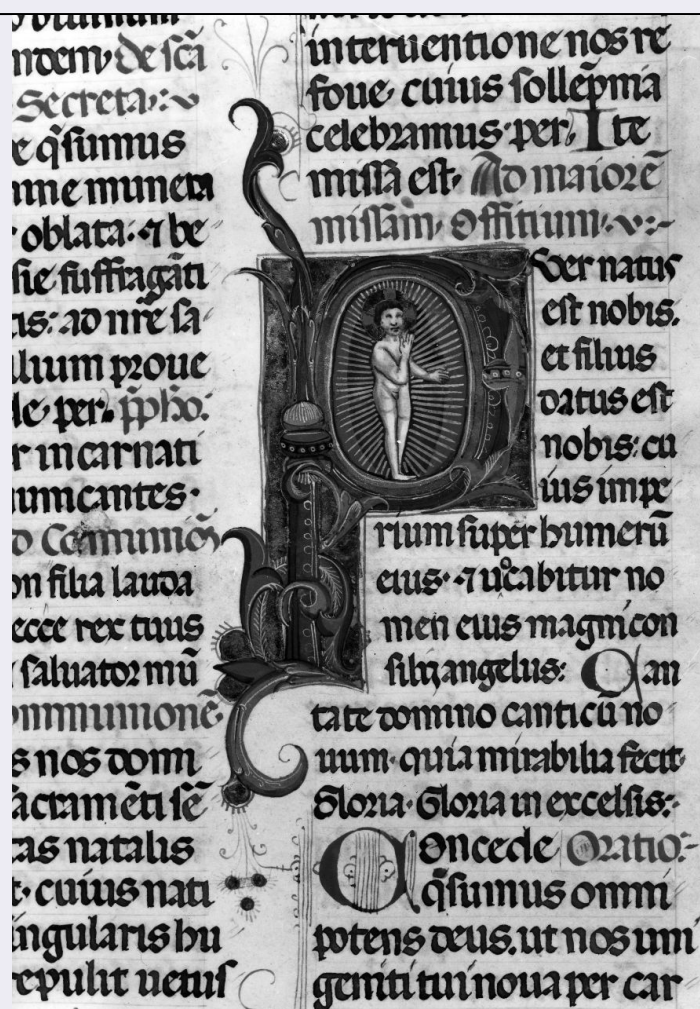 de scā
Secreta
e q̄sumus
munera
oblata: ⁊ be
suffragāti
tis: ad nr̄e sa
per
r incarnati
Cōmuniō
on filia lauda
ecce rex tuus
saluator mū
ommunionē
s nos domi
acramēti
as natalis
t. cuius nati
ingularis hu
repulit uetus
interuentione nos re
foue. cuius sollēpnia
celebramus. per. Ite
missa est. Ad maiorē
missam Offitium
Puer natus
est nobis.
et filius
datus est
nobis: cu
ius impe
rium super humerū
eius. ⁊ uocabitur no
men eius magni con
silij angelus: Can
tate domino canticū no
uum. quia mirabilia fecit.
Gloria. Gloria in excelsis:
Concede Oratio:
q̄sumus omni
potens deus. ut nos uni
geniti tui noua per car